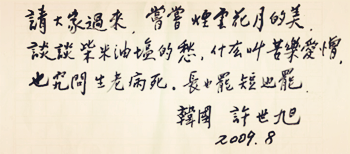 請大家過來，嘗嘗煙雲花月的美，
談談柴米油塩的愁，什么叫苦樂愛憎，
也究問生老病死。長也罷短也罷。
韓國 許世旭
2009.8